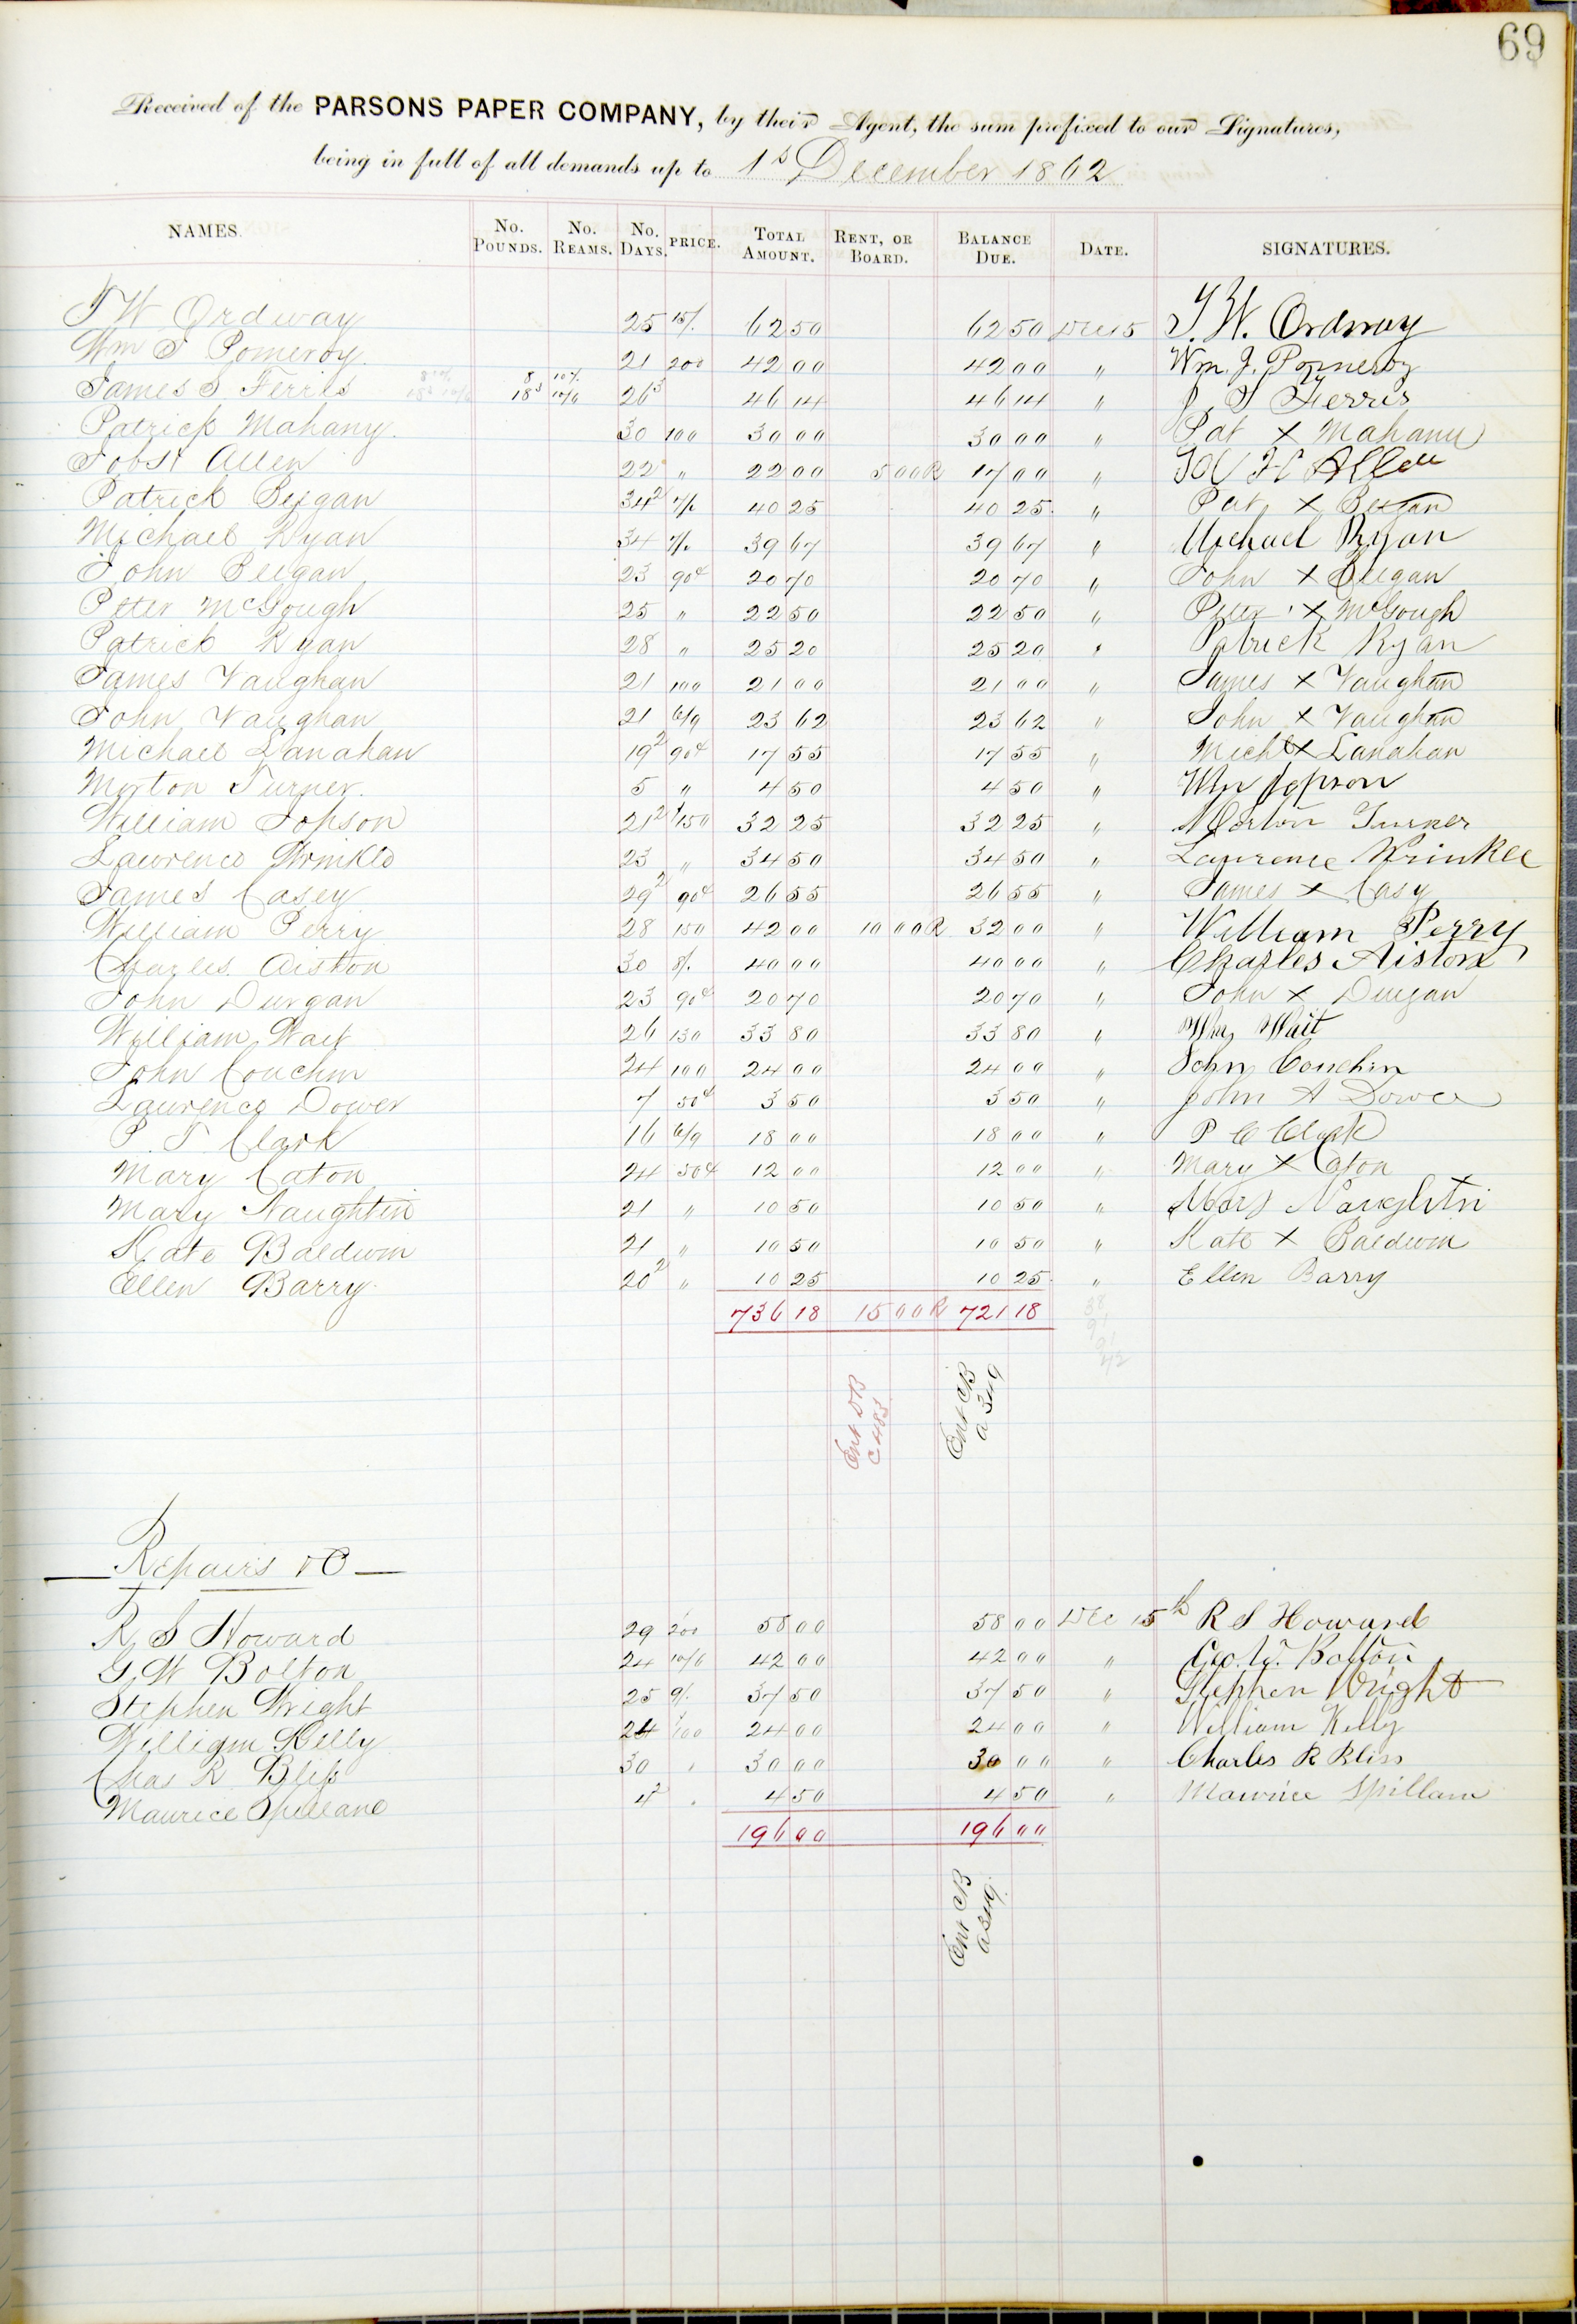 69
Received of the PARSONS PAPER COMPANY, by their Agent, the sum prefixed to our Signatures,
being in full of all demands up to 1st December 1862
NAMES. No. POUNDS. No. REAMS. No. DAYS. PRICE. TOTAL AMOUNT. RENT, OR BOARD. BALANCE DUE. DATE. SIGNATURES.
J W Ordway 25 15/. 62 50 62 50 Dec 15 J. W. Ordway
Wm J Pomeroy 21 200 42 00 42 00 " Wm. J. Pomeroy
James S Ferris 8 10/. 18 3 10/6 26 3 46 14 46 14 " J S Ferris
Patrick Mahany 30 100 30 00 30 00 " Pat X Mahany
Allen 22 " 22 00 5 00 R 17 00 " Allen
Patrick Beegan 34 2 7/. 40 25 40 25 " Pat X Beegan
Michael Ryan 34 7/. 39 67 39 67 " Michael Ryan
John Beegan 23 90¢ 20 70 20 70 " John X Beegan
Peter McGough 25 " 22 50 22 50 " Peter X McGough
Patrick Ryan 28 " 25 20 25 20 " Patrick Ryan
James Vaughan 21 100 21 00 21 00 " James X Vaughan
John Vaughan 21 6/9 23 62 23 62 " John X Vaughan
Michael Lanahan 19 2 90¢ 17 55 17 55 " Michl X Lanahan
Morton Turner 5 " 4 50 4 50 " Wm Jopson
William Jopson 21 2 150 32 25 32 25 " Morton Turner
Lawrence Wrinkle 23 " 34 50 34 50 " Lawrence Wrinkle
James Casey 29 2 90¢ 26 55 26 55 " James X Casy
William Perry 28 150 42 00 10 00 R 32 00 " William Perry
Charles Aiston 30 8/. 40 00 40 00 " Charles Aiston
John Durgan 23 90¢ 20 70 20 70 " John X Durgan
William Wait 26 130 33 80 33 80 " Wm Wait
John Couchin 24 100 24 00 24 00 " John Couchin
Laurence Dower 7 50¢ 3 50 3 50 " John A Dower
P. T. Clark 16 6/9 18 00 18 00 " P C Clark
Mary Caton 24 50¢ 12 00 12 00 " Mary X Caton
Mary Naughtin 21 " 10 50 10 50 " Mary Naughtin
Kate Baldwin 21 " 10 50 10 50 " Kate X Baldwin
Ellen Barry 20 2 " 10 25 10 25 " Ellen Barry
736 18 15 00 R 721 18
Ent DB
C 483
Ent CB
a 349
Repairs &C
R S Howard 29 200 58 00 58 00 Dec 15th R S Howard
G W Bolton 24 10/6 42 00 42 00 " Geo. W. Bolton
Stephen Wright 25 9/. 37 50 37 50 " Stephen Wright
William Kelly 24 100 24 00 24 00 " William Kelly
Chas R Bliss 30 " 30 00 30 00 " Charles R Bliss
Maurice Spillane 4 2 " 4 50 4 50 " Maurice Spillane
196 00 196 00
Ent CB
a 349